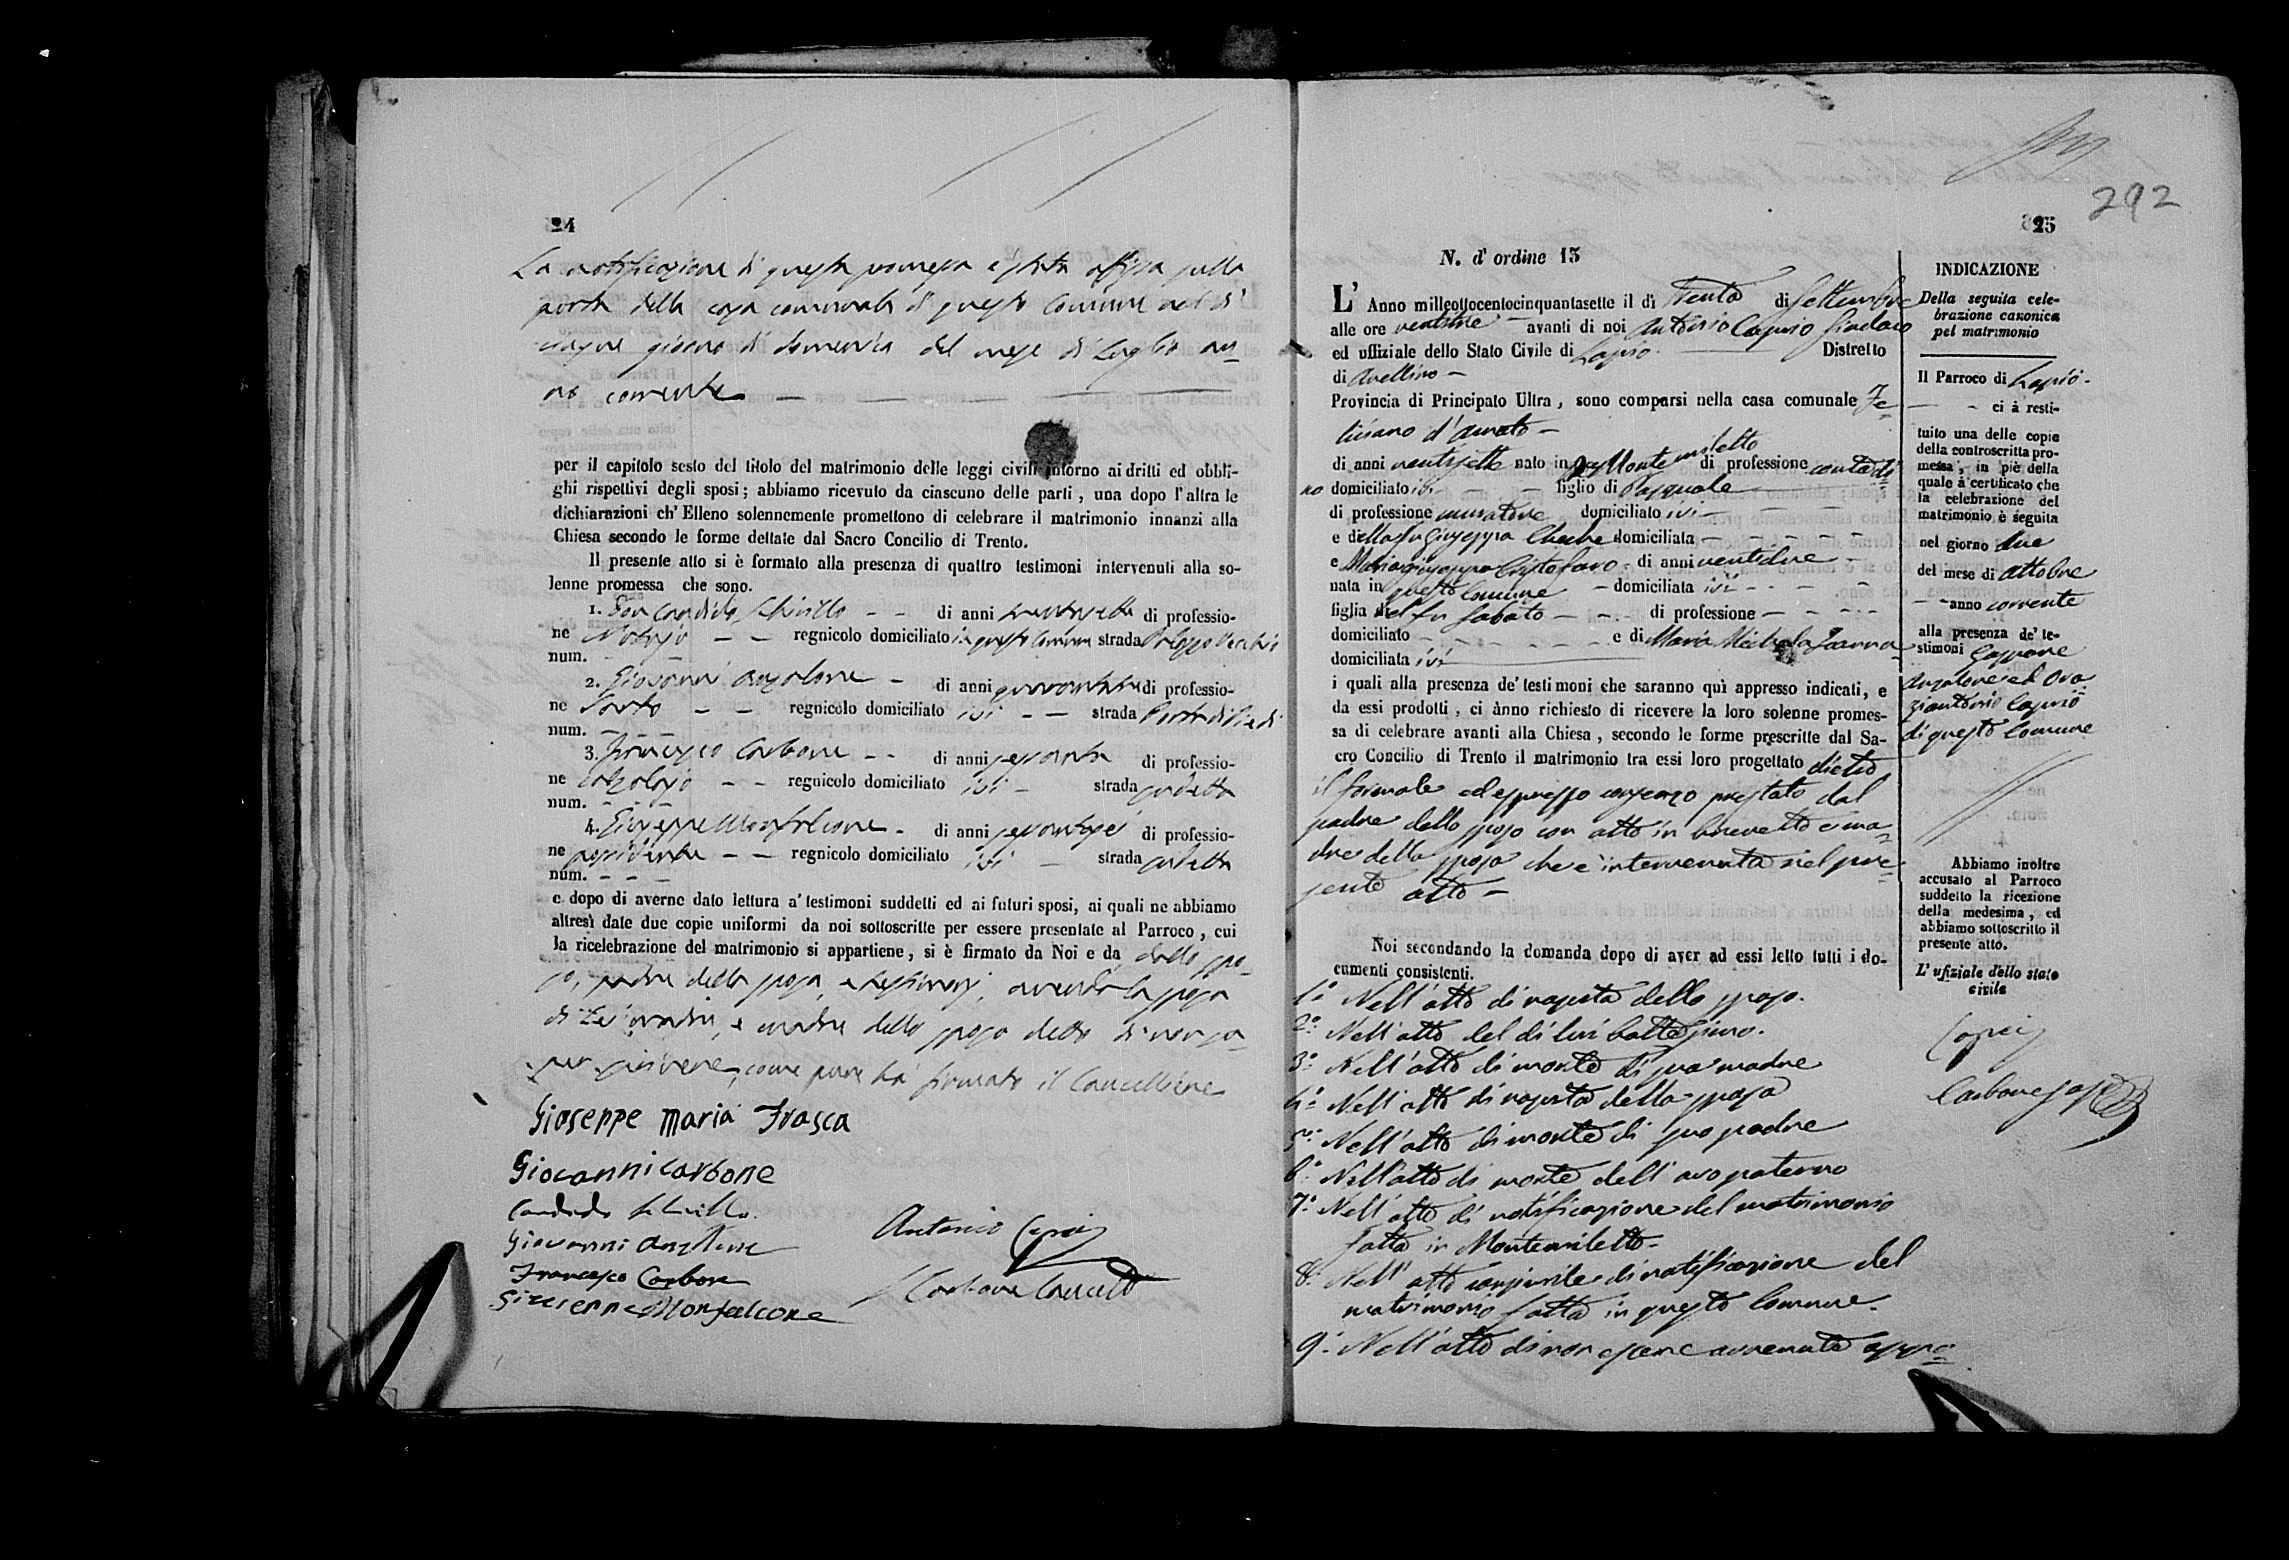 24
La notificazione di questa promessa è stata affissa sulla
porta della casa comunale di questo Comune nel dì
giorno di domenica del mese di Luglio an-
no corrente
per il capitolo sesto del titolo del matrimonio delle leggi civili intorno ai dritti ed obbli-
ghi rispettivi degli sposi; abbiamo ricevuto da ciascuno delle parti, una dopo l'altra le
dichiarazioni ch'Elleno solennemente promettono di celebrare il matrimonio innanzi alla
Chiesa secondo le forme dettate dal Sacro Concilio di Trento.
Il presente atto si è formato alla presenza di quattro testimoni intervenuti alla so-
lenne promessa che sono.
1. Don Candido Schirillo - - di anni trentasette di professio-
ne Notajo - - regnicolo domiciliato in questo Comune strada Palazzo Vecchio
num. - -
2. Giovanni Anzalone - di anni quaranta di professio-
ne Sarto - - regnicolo domiciliato ivi - - strada
num. - - -
3. Francesco Carbone - - di anni sessanta di professio-
ne Calzolajo - - regnicolo domiciliato ivi - strada
num. - - -
4. Giuseppe Monfalcone - di anni sessantasei di professio-
ne possidente - - regnicolo domiciliato ivi - strada
num. - - -
e dopo di averne dato lettura a' testimoni suddetti ed ai futuri sposi, ai quali ne abbiamo
altresì date due copie uniformi da noi sottoscritte per essere presentate al Parroco, cui
la ricelebrazione del matrimonio si appartiene, si è firmato da Noi e da dallo spo-
so, padre della sposa, e testimonj, avendo la sposa
di lei madre, e madre dello sposo detto di non sa-
per scrivere, come pure ha firmato il Cancelliere
Giuseppe Maria Frasca
Giovanni Carbone
Candido Schirillo
Giovanni Anzalone
Antonio Caprio
Francesco Carbone
Carbone Cancell.
Giuseppe Monfalcone
292
25
N. d' ordine 13
L' Anno millottocentocinquantasette il dì trenta di Settembre
alle ore ventitre avanti di noi Antonio Caprio Sindaco
ed uffiziale dello Stato Civile di Lapio. Distretto
di Avellino -
Provincia di Principato Ultra, sono comparsi nella casa comunale Fe-
liciano d'Amato -
di anni ventisette nato in Montemiletto di professione contadi-
no domiciliato ivi - figlio di Pasquale
di professione muratore domiciliato ivi - - -
e della fu Giuseppa domiciliata - - - - -
e Mariagiuseppa Cristofaro - di anni ventidue -
nata in questo Comune - domiciliata ivi - - -
figlia del fu Sabato - - - di professione - - - -
domiciliato - - - - - - e di Maria Michela Ianna-
domiciliata ivi
i quali alla presenza de' testimoni che saranno quì appresso indicati, e
da essi prodotti, ci ànno richiesto di ricevere la loro solenne promes-
sa di celebrare avanti alla Chiesa, secondo le forme prescritte dal Sa-
cro Concilio di Trento il matrimonio tra essi loro progettato dietro
il formale ed espresso consenso prestato dal
padre dello sposo con atto in brevetto e ma-
dre della sposa che è intervenuta nel pre-
sente atto -
Noi secondando la domanda dopo di aver ad essi letto tutti i do-
cumenti consistenti.
1.° Nell'atto di nascita dello sposo.
2.° Nell'atto del di lui battesimo.
3.° Nell'atto di morte di sua madre
4.° Nell'atto di nascita della sposa
5.° Nell'atto di morte di suo padre
6.° Nell'atto di morte dell'avo paterno
7.° Nell'atto di notificazione del matrimonio
fatta in Montemiletto.
8.° Nell'atto consimile di notificazione del
matrimonio fatta in questo Comune.
9.° Nell'atto di non essere avvenuta oppo-
INDICAZIONE
Della seguita cele-
brazione canonica
pel matrimonio
Il Parroco di Lapio.
- - ci à resti-
tuito una delle copie
della controscritta pro-
messa, in piè della
quale à certificato che
la celebrazione del
matrimonio è seguita
nel giorno due
del mese di Ottobre
- - anno corrente
alla presenza de' te-
stimoni Gaspare
Anzalone ed Ora-
ziantonio Caprio
di questo Comune
Abbiamo inoltre
accusato al Parroco
suddetto la ricezione
della medesima, ed
abbiamo sottoscritto il
presente atto.
L' ufiziale dello stato
civile
Caprio
Carbone